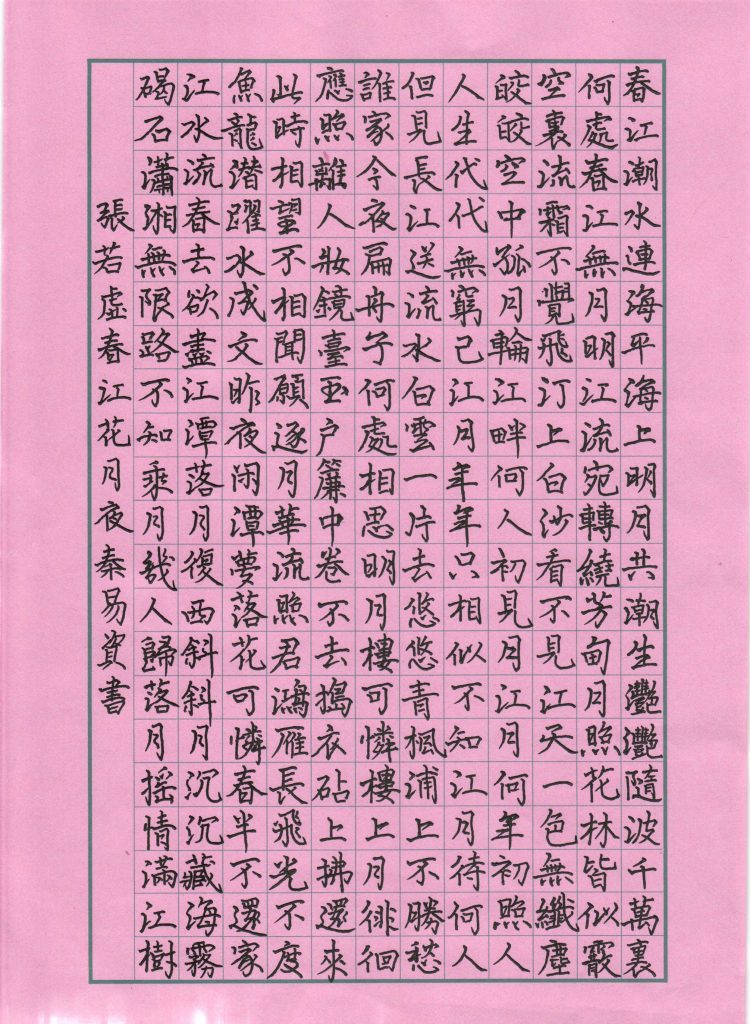 春江潮水連海平海上明月共潮生灔灔隨波千萬裏
何處春江無月明江流宛轉繞芳甸月照花林皆似霰
空裏流霜不覺飛汀上白沙看不見江天一色無纖塵
皎皎空中孤月輪江畔何人初見月江月何年初照人
人生代代無窮己江月年年只相似不知江月待何人
但見長江送流水白雲一片去悠悠青楓浦上不勝愁
誰家今夜扁舟子何處相思明月樓可憐樓上月徘徊
應照離人妝鏡臺玉户簾中卷不去搗衣砧上拂還來
此時相望不相聞願逐月華流照君鴻雁長飛光不度
魚龍潛躍水成文昨夜閑潭夢落花可憐春半不還家
江水流春去欲盡江潭落月復西斜斜月沉沉藏海霧
碣石瀟湘無限路不知乘月幾人歸落月摇情滿江樹
張若虛春江花月夜秦易資書